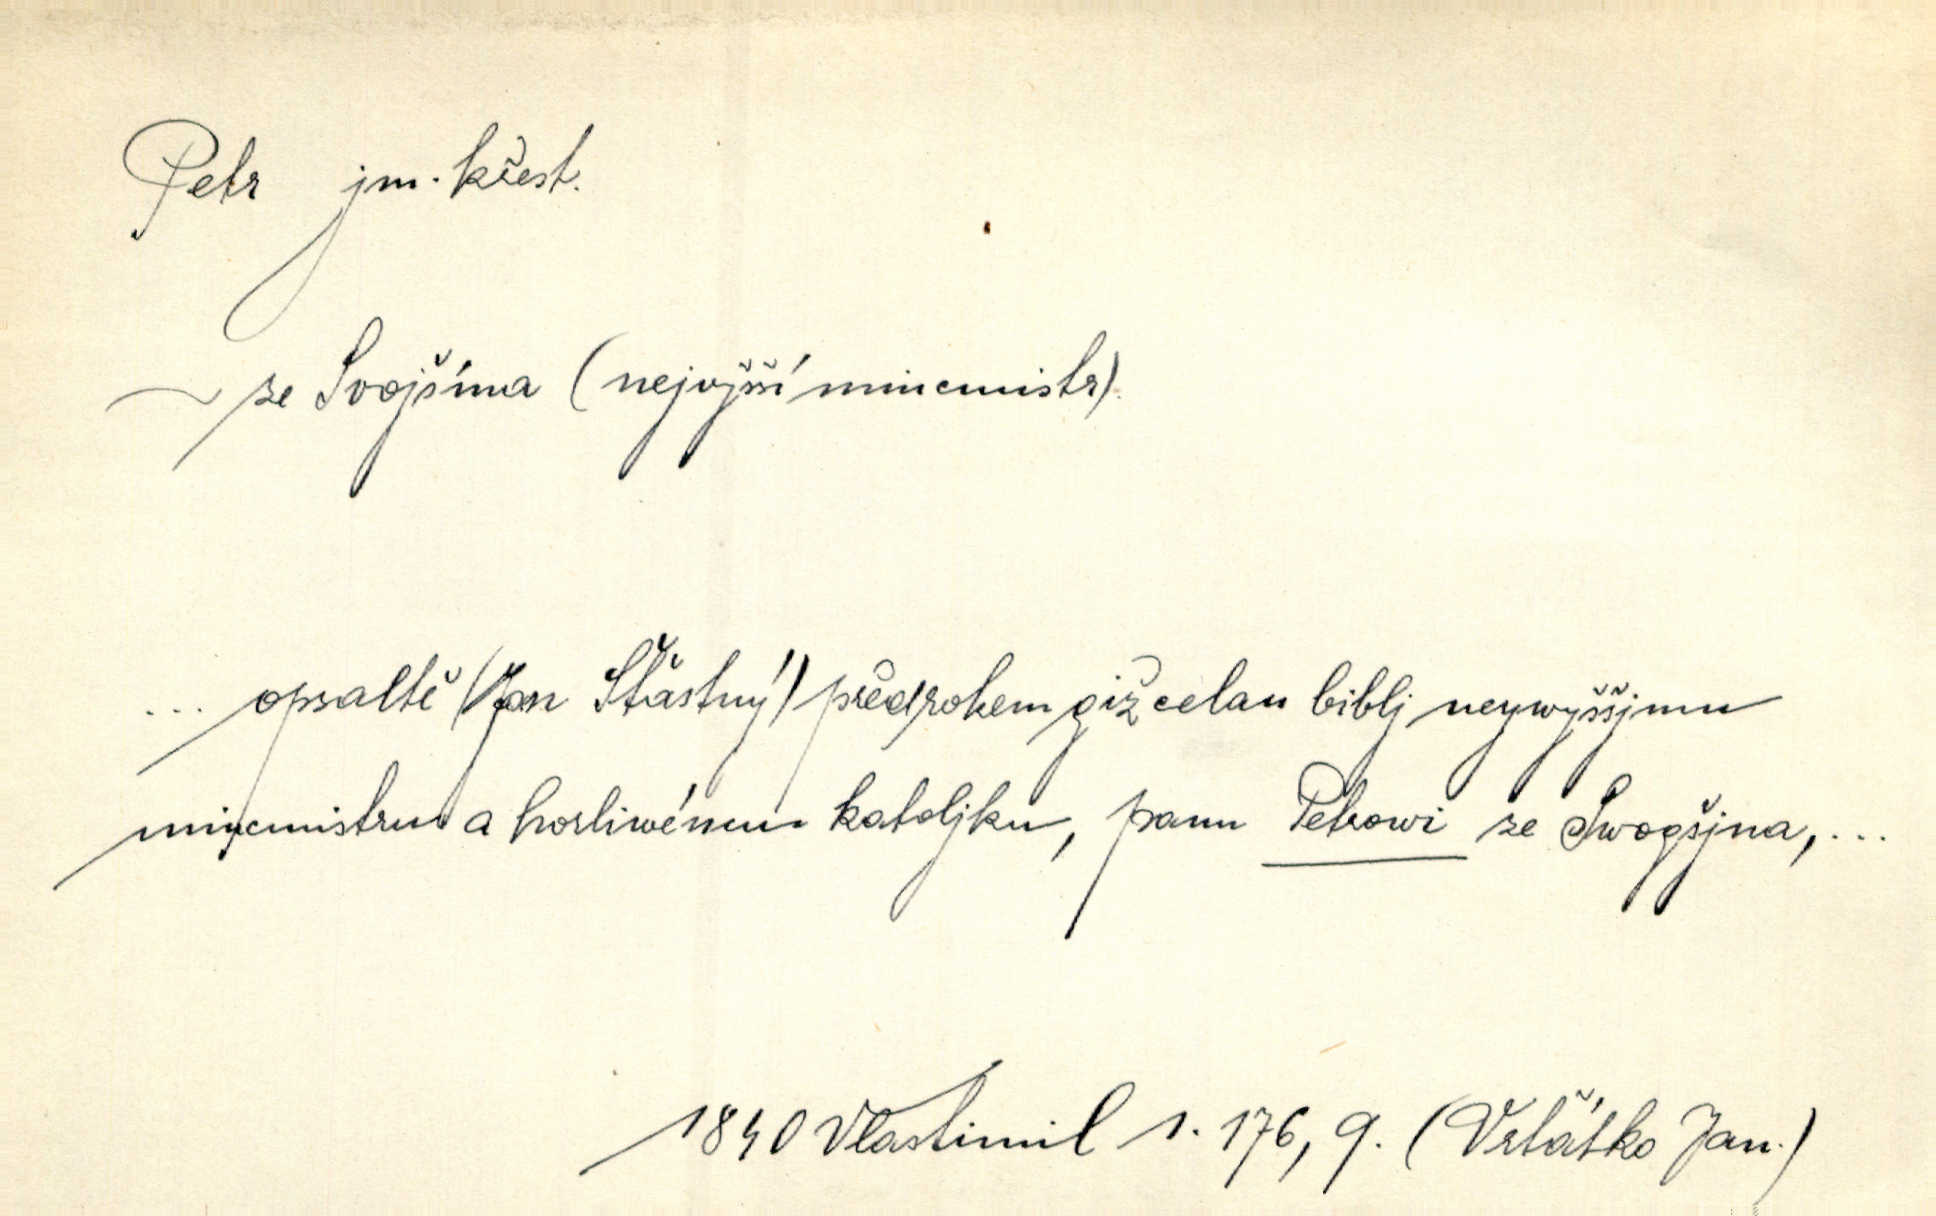 Petr jm. křest.
~ ze Svojšína (nejvyšší mincmistr).
... opsaltě (Jan Šťastný) předrokem giž celau biblj neywyššjmu
mincmistru a horliwému katoljku, panu Petrowi ze Swogšjna, ...
1840 Vlastimil 1. 176, 9. (Vrťátko Jan.)